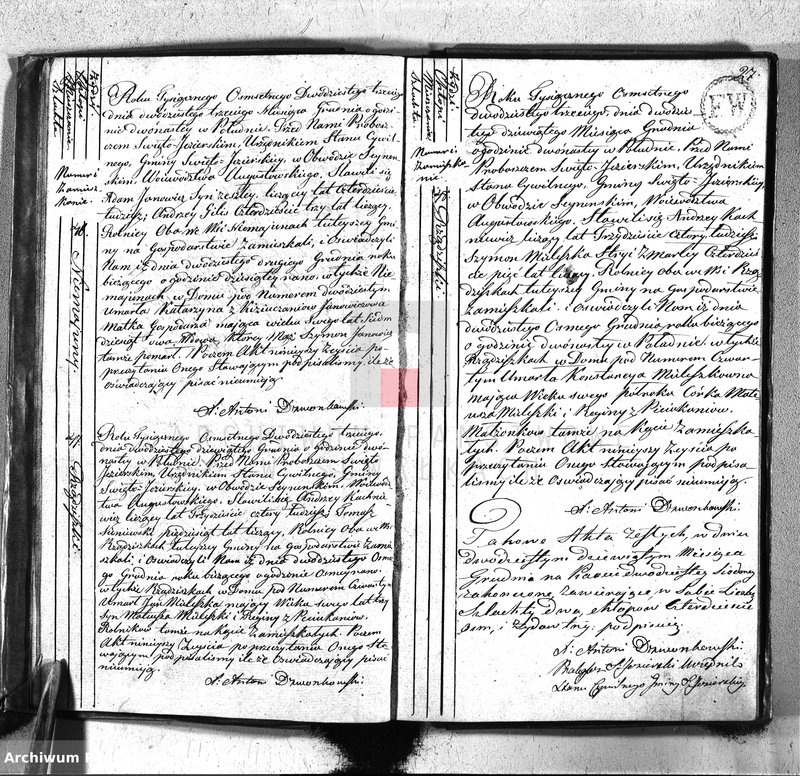 Roku Tysiącznego Osmsetnego Dwódziestego trzeciego
dnia dwódziestego trzeciego Miesiąca Grudnia o godzi
nie dwonastey w Południe. Przed Nami Probo
szczem Swięto-Jezierskim, Urzędnikiem Stanu Cywil
nego, Gminy Swięto-Jezierskiey, w Obwodzie Seynen
skim, Woiewództwa Augustowskiego. Stawili się
Adam Janowicz Syn zeszłey, liczący lat Czterdzieście
tudzież Andrzey Gilis Czterdzieście trzy lat liczący,
Rolnicy Oba we Wsi Niemajunach tuteyszey Gmi
ny na Gospodarstwie Zamieszkali, i Oswiadczyli
Nam iż dnia dwódziestego drugiego Grudnia roku
bieżącego o godzinie dziesiątey rano, w tychże Nie
majunach w Domu pod Numerem dwódziestym
Umarła Katarzyna z Janowiczowa
Matka Gospodarza maiąca wieku Swego lat Siedm
dziesiąt dwa, Wdowa, ktorey Mąż Szymon Janowicz
tamże pomarł. Poczem Akt ninieyszy Zeyscia po
przeczytaniu Onego Stawaiącym podpisalismy, ile że
oświadczaiący pisać nieumieią.
X. Antoni Dzwonkowski.
Roku Tysiącznego Osmsetnego Dwódziestego trzeciego,
dnia dwódziestego dziewiątego Grudnia o godzinie dwó
nastey w Południe. Przed Nami Proboszczem Swięto
Jezierskim, Urzędnikiem Stanu Cywilnego, Gminy
Swięto-Jezierskiey, w Obwodzie Seynenskim, Woiewódz
twa Augustowskiego. Stawili się Andrzey Kachnie
wicz liczący lat Trzydzieście cztery tudzież Tomasz
Sieniewski piędziesiąt lat liczący, Rolnicy Oba we Wsi
Rządziszkach tuteyszey Gminy na Gospodarstwie Zamie
szkali, i Oswiadczyli Nam iż dnia dwódziestego Osme
go Grudnia roku bieżącego o godzinie Osmey rano,
w tychże Rządziszkach w Domu pod Numerem Czwartym
Umarł Jan Mizleyka maiący Wieku swego lat trzy
Syn Mateusza Mizleyki i Reginy z Pieciukaniow.
Rolnikow tamże na Kącie Zamieszkałych. Poczem
Akt ninieyszy Zeyscia po przeczytaniu Onego Sta
waiącym podpisalismy ile że Oswiadczaiący pisać
nieumieią.
X. Antoni Dzwonkowski.
Numer i
Zamiesz
kanie.
Niemajuny
27.
FW
Roku Tysiącznego Osmsetnego
dwódziestego trzeciego, dnia dwódzie
stego dziewiątego Miesiąca Grudnia
o godzinie dwónastey w Południe. Przed Nami
Proboszczem Swięto-Jezierskim, Urzędnikiem
Stanu Cywilnego, Gminy Swięto-Jezierskiey,
w Obwodzie Seynenskim, Woiewództwa
Augustowskiego. Stawili się Andrzey Kach
niewicz liczący lat Trzydzieście Cztery tudzież
Szymon Mizleyka Stryi Zmarłey Czterdzie
ście pięć lat liczący, Rolnicy oba we Wsi Rzą
dziszkach tuteyszey Gminy na Gospodarstwie
Zamieszkali. i Oswiadczyli Nam iż dnia
dwódziestego Osmego Grudnia roku bieżącego
o godzinie dwónastey w Południe, w tychże
Rządziszkach w Domu pod Numerem Czwar
tym Umarła Konstancya Mizleykowna
maiąca Wieku swego półroka Córka Mate
usza Mizleyki i Reginy z Pieciukaniow.
Małżonkow tamże na Kącie Zamieszka
łych. Poczem Akt ninieyszy Zeyscia po
przeczytaniu Onego Stawaiącym podpisa
lismy ile że Oswiadczaiący pisać nieumieią.
X. Antoni Dzwonkowski.
Takowe Akta Zeszłych, w dniu
dwódziestym dziewiątym Miesiąca
Grudnia na Karcie dwódziestey Siodmey
zakonczone, zawieraiące w Sobie Liczby
Szlachty dwa, chłopow Czterdzieście
Osm, i Żydów trzy. podpisuię
X. Antoni Dzwonkowski.
Stanu Cywilnego Gminy S. Jezierskiey
Numer i
Zamieszka
nie.
Archiwum